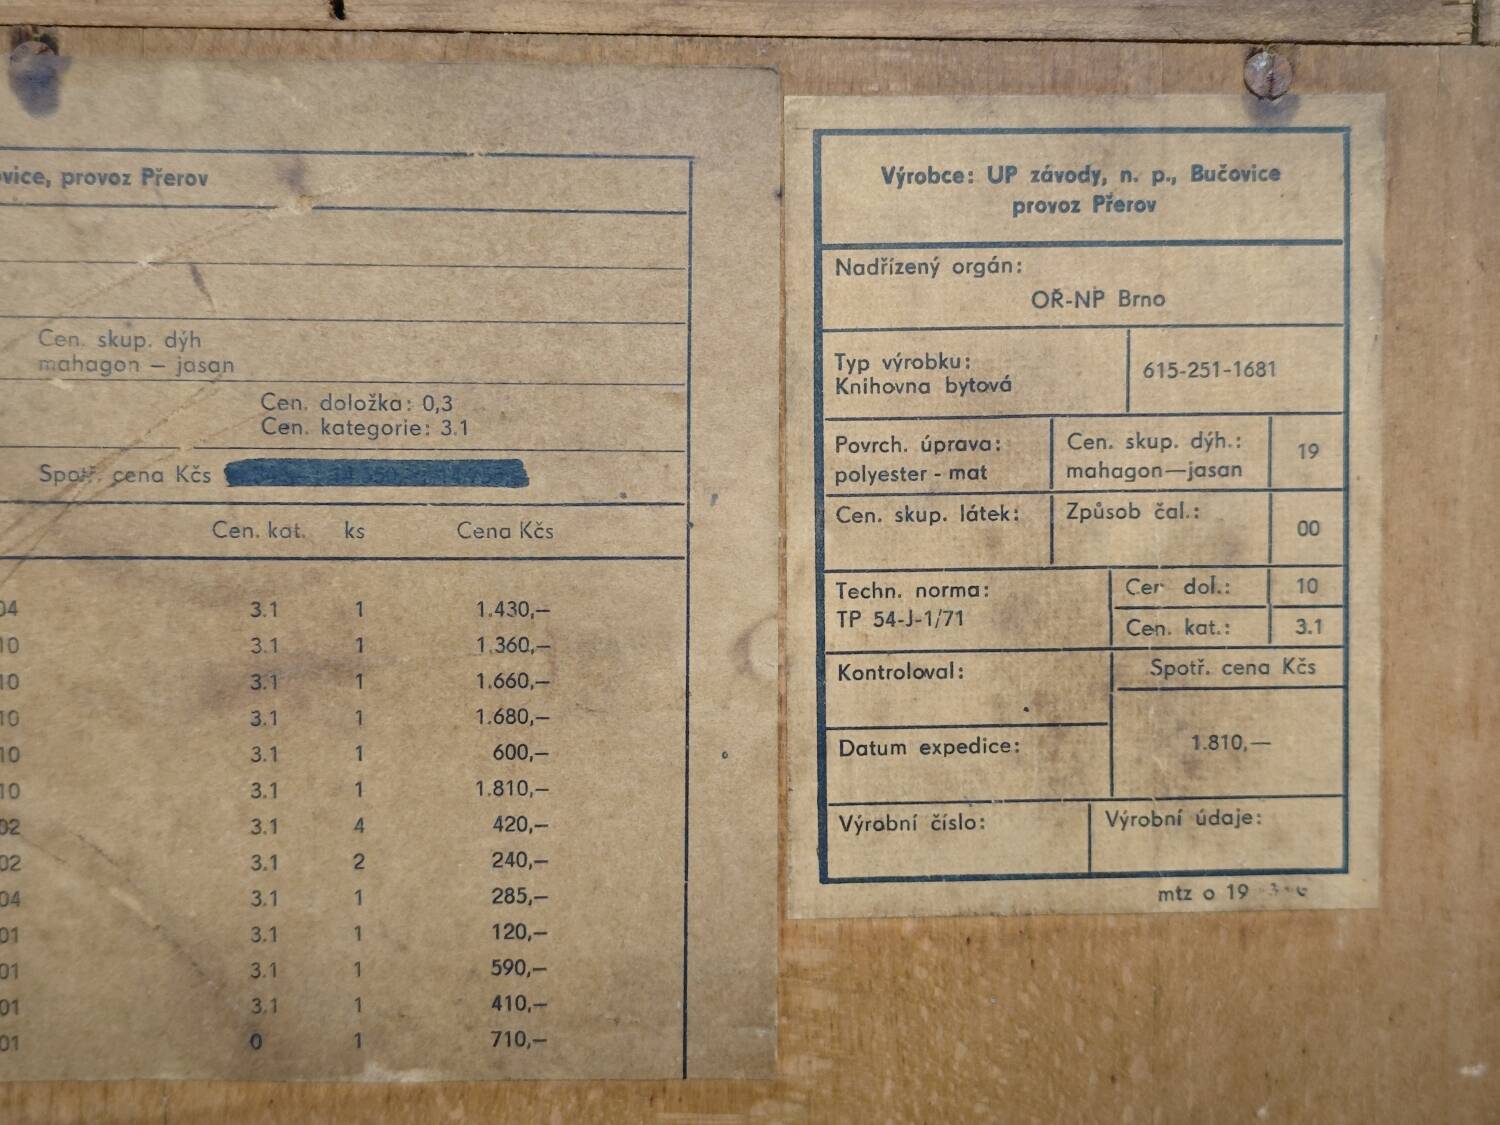 vice, provoz Přerov
Cen. skup. dýh
mahagon – jasan
Cen. doložka: 0,3
Cen. kategorie: 3.1
Spotř. cena Kčs
Cen. kat. ks Cena Kčs
04 3.1 1 1.430,–
10 3.1 1 1.360,–
10 3.1 1 1.660,–
10 3.1 1 1.680,–
10 3.1 1 600,–
10 3.1 1 1.810,–
02 3.1 4 420,–
02 3.1 2 240,–
04 3.1 1 285,–
01 3.1 1 120,–
01 3.1 1 590,–
01 3.1 1 410,–
01 0 1 710,–
Výrobce: UP závody, n. p., Bučovice
provoz Přerov
Nadřízený orgán:
OŘ-NP Brno
Typ výrobku:
Knihovna bytová
615-251-1681
Povrch. úprava:
polyester - mat
Cen. skup. dýh.:
mahagon—jasan
19
Cen. skup. látek:
Způsob čal.:
00
Techn. norma:
TP 54-J-1/71
Cen dol.: 10
Cen. kat.: 3.1
Kontroloval:
Spotř. cena Kčs
Datum expedice:
1.810,—
Výrobní číslo:
Výrobní údaje:
mtz o 19